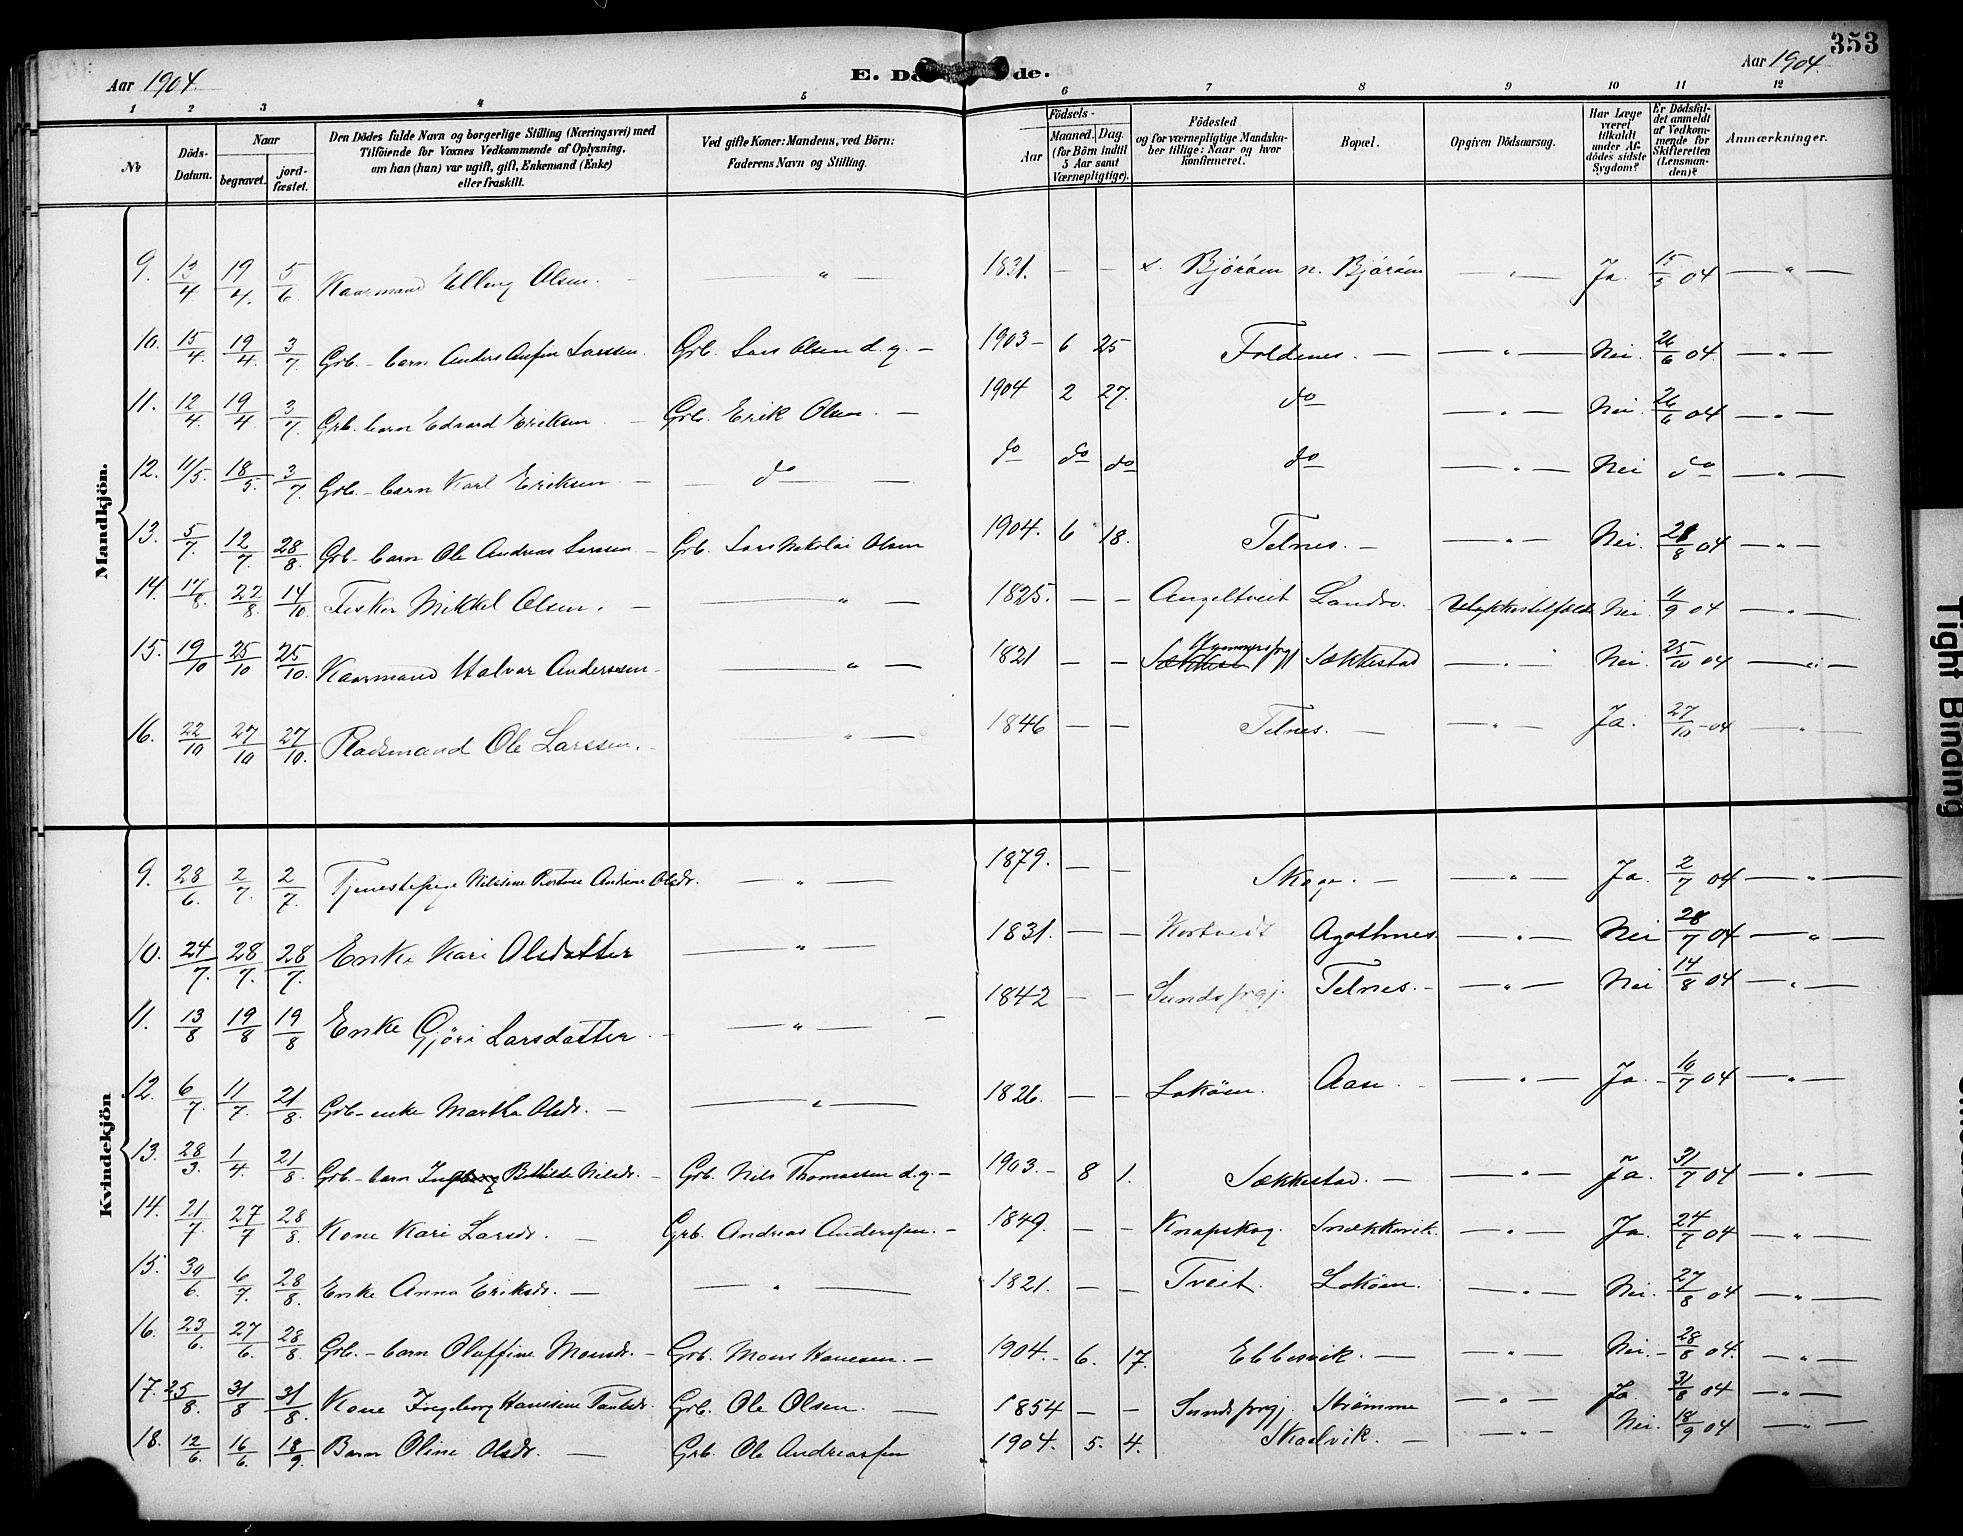 353
Aar 1904
E. Dö de.
Aar 1904.
1 2 3 4 5 6 7 8 9 10 11 12
№
Döds-Datum.
Naar
begravet.
jord-fæstet.
Den Dödes fulde Navn og borgerlige Stilling (Næringsvei) med
Tilföiende for Voxnes Vedkommende af Oplysning,
om han (hun) var ugift, gift, Enkemand (Enke)
eller fraskilt.
Ved gifte Koner: Mandens, ved Börn:
Faderens Navn og Stilling.
Födsels-
Aar
Maaned. Dag.
(for Börn indtil
5 Aar samt
Værnepligtige).
Födested
og for værnepligtige Mandska-
ber tillige: Naar og hvor
konfirmeret.
Bopæl.
Opgiven Dödsaarsag.
Har Læge
været
tilkaldt
under Af-
dödes sidste
Sygdom?
Er Dödsfal-
det anmeldt
af Vedkom-
mende for
Skifteretten
(Lensman-
den)?
Anmærkninger.
Mandkjön.
9. 13/4 19/4. 5/6. Kaarmand Elling Olsen. — " — 1831. — — s. Björöen n. Björöen — " — Ja. 15/5 04 — " —
10. 15/4. 19/4. 3/7. Grb. - barn Anders Anfin Larssen. Grb. Lars Olsen d. y. — 1903 — 6 25 Foldenes. — — " — Nei. 26/6 04. — " —
11. 12/4. 19/4. 3/7. Grb. barn Edvard Eriksen — Grb. Erik Olsen. — 1904 2 27. do — " — Nei. 26/6 04 — " —
12. 11/5. 18/5. 3/7. Grb. - barn Karl Eriksen. — — do — do do do do — " — Nei do — " —
13. 5/7. 12/7. 28/8. Grb - barn Ole Andreas Larssen — Grb. Lars Nikolai Olsen 1904. 6 18. Telnes. — — " — Nei. 28/8 04 — " —
14. 17/8. 22/8. 14/10. Fisker Mikkel Olsen. — — " — 1825. — — Angeltveit Landro. Ulykkestilfælde Nei. 11/9 04 — " —
15. 19/10 25/10 25/10. Kaarmand Halvor Anderssen — — " — 1821 — — Sækkestad — " Nei. 25/10 04 — " —
16. 22/10 27/10 27/10. Pladsmand Ole Larssen. — " — 1846 — — Telnes. — — " — Ja. 27/10 - 04 — " —
Kvindekjön
9. 28/6. 2/7. 2/7. Tjenestepige Nilsine Andrine Olsdr. — " — 1879. — — Skoge. — — " — Ja. 2/7 04 — " —
10. 24/7. 28/7. 28/7. Enke Kari Olsdatter — " — 1831. — — Kortveit Agothnes. — " — Nei 28/7 04 — " —
11. 13/8 19/8 19/8 Enke Gjöri Larsdatter. — — " — 1842 — — Sunds prgj. Telnes. — — " — Nei 14/8 04 — " —
12. 6/7. 11/7. 21/8. Grb - enke Martha Olsdr. — — " — 1826. — — Loköen. Aase. — — " — Ja. — 10/7 04 — " —
13. 28/3. 1/4. 21/8. Grb. - barn Bothilde Nilsdr. — Grb. Nils Thomassen d. y. — 1903. — 8 1. Sækkestad. — — " — Ja. 31/7 04 — " —
14. 21/7. 27/7 28/8. Kone Kari Larsdr. — Grb. Andreas Anderssen. — 1849. — — Knapskog. Snekkevik. — " — Ja. 24/7 04 — " —
15. 30/6. 6/7. 28/8. Enke Anna Eriksdr. — — " — 1821. — — Tveit. Loköen. — " — Nei. 27/8 04 — " —
16. 23/6. 27/6. 28/8. Grb. - barn Oluffine Monsdr. — Grb. Mons Hanssen. — 1904. — 6. 17. Ebbesvik. — — " — Nei. — 28/8 04. — " —
17. 25/8. 31/8 31/8. Kone Ingeborg Hanssine Paulsdr. Grb. Ole Olsen. — 1854 — — Sunds prgj. Strömme — " — Ja 31/8 04 — " —
18. 12/6. 16/6. 18/9. Barn Oline Olsdr. — Grb. Ole Andreassen 1904. 5. 4. Skaalvik. — — " — Nei. 18/9 04 — " —
Tight Binding